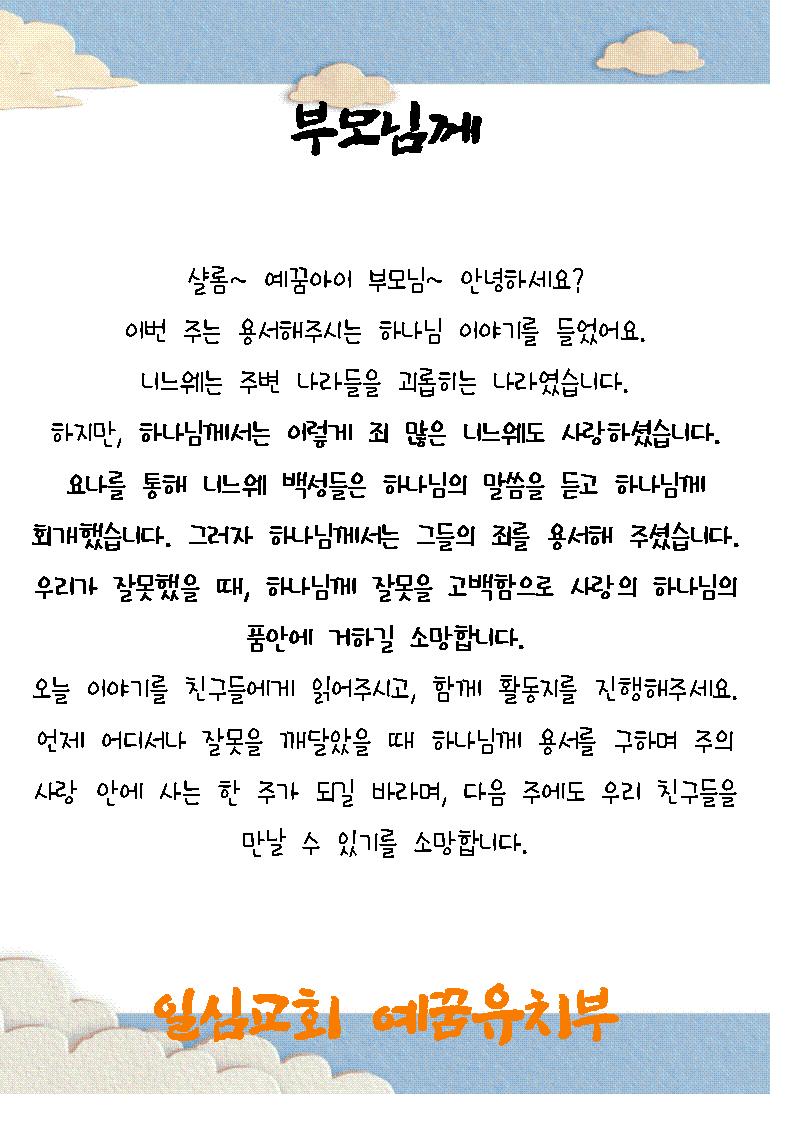 부모님께
샬롬~ 예꿈아이 부모님~ 안녕하세요?
이번 주는 용서해주시는 하나님 이야기를 들었어요.
니느웨는 주변 나라들을 괴롭히는 나라였습니다.
하지만, 하나님께서는 이렇게 죄 많은 니느웨도 사랑하셨습니다.
요나를 통해 니느웨 백성들은 하나님의 말씀을 듣고 하나님께
회개했습니다. 그러자 하나님께서는 그들의 죄를 용서해 주셨습니다.
우리가 잘못했을 때, 하나님께 잘못을 고백함으로 사랑의 하나님의
품안에 거하길 소망합니다.
오늘 이야기를 친구들에게 읽어주시고, 함께 활동지를 진행해주세요.
언제 어디서나 잘못을 깨달았을 때 하나님께 용서를 구하며 주의
사랑 안에 사는 한 주가 되길 바라며, 다음 주에도 우리 친구들을
만날 수 있기를 소망합니다.
일심교회 예꿈유치부